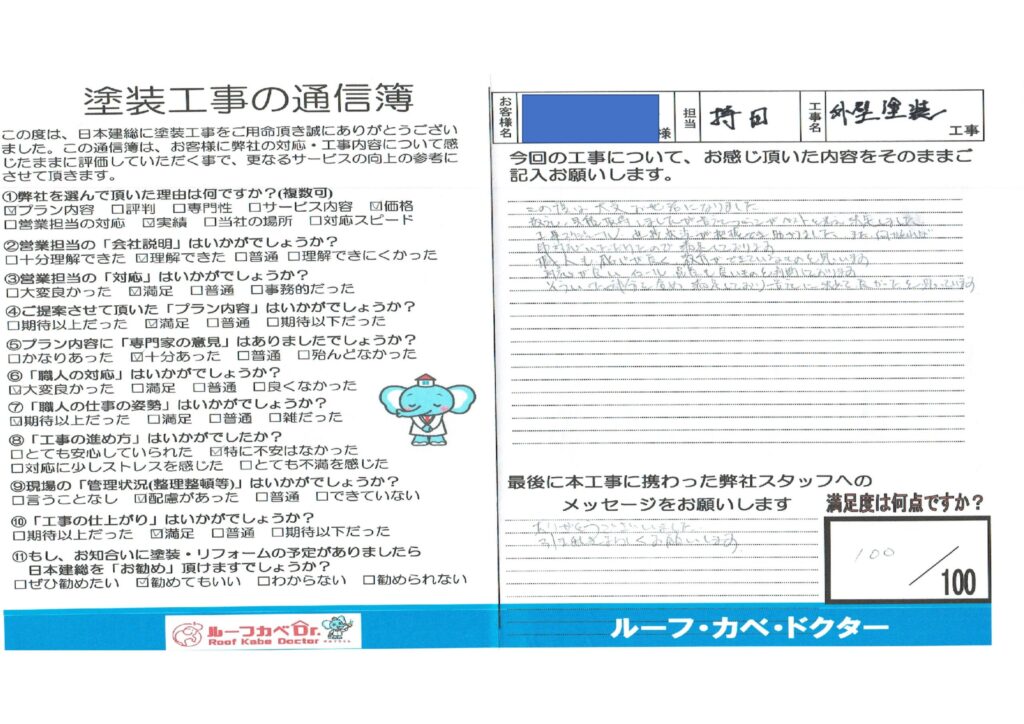 塗装工事の通信簿
この度は、日本建総に塗装工事をご用命頂き誠にありがとうござい
ました。この通信簿は、お客様に弊社の対応・工事内容について感
じたままに評価していただく事で、更なるサービスの向上の参考に
させて頂きます。
①弊社を選んで頂いた理由は何ですか?(複数可)
☑プラン内容 □評判 □専門性 □サービス内容 ☑価格
□営業担当の対応 ☑実績 □当社の場所 □対応スピード
②営業担当の「会社説明」はいかがでしょうか?
□十分理解できた ☑理解できた □普通 □理解できにくかった
③営業担当の「対応」はいかがでしょうか?
□大変良かった ☑満足 □普通 □事務的だった
④ご提案させて頂いた「プラン内容」はいかがでしょうか?
□期待以上だった ☑満足 □普通 □期待以下だった
⑤プラン内容に「専門家の意見」はありましたでしょうか?
□かなりあった ☑十分あった □普通 □殆んどなかった
⑥「職人の対応」はいかがでしょうか?
☑大変良かった □満足 □普通 □良くなかった
⑦「職人の仕事の姿勢」はいかがでしょうか?
☑期待以上だった □満足 □普通 □雑だった
⑧「工事の進め方」はいかがでしたか?
□とても安心していられた ☑特に不安はなかった
□対応に少しストレスを感じた □とても不満を感じた
⑨現場の「管理状況(整理整頓等)」はいかがでしょうか?
□言うことなし ☑配慮があった □普通 □できていない
⑩「工事の仕上がり」はいかがでしょうか?
□期待以上だった ☑満足 □普通 □期待以下だった
⑪もし、お知合いに塗装・リフォームの予定がありましたら
日本建総を「お勧め」頂けますでしょうか?
□ぜひ勧めたい ☑勧めてもいい □わからない □勧められない
ルーフカベDr.
Roof Kabe Doctor
お客様名 様 担当 持田 工事名 外壁塗装 工事
今回の工事について、お感じ頂いた内容をそのままご
記入お願いします。
この度は大変お世話になりました
最後に本工事に携わった弊社スタッフへの
メッセージをお願いします
ありがとうございました
引き続きよろしくお願いします
満足度は何点ですか?
100/100
ルーフ・カベ・ドクター